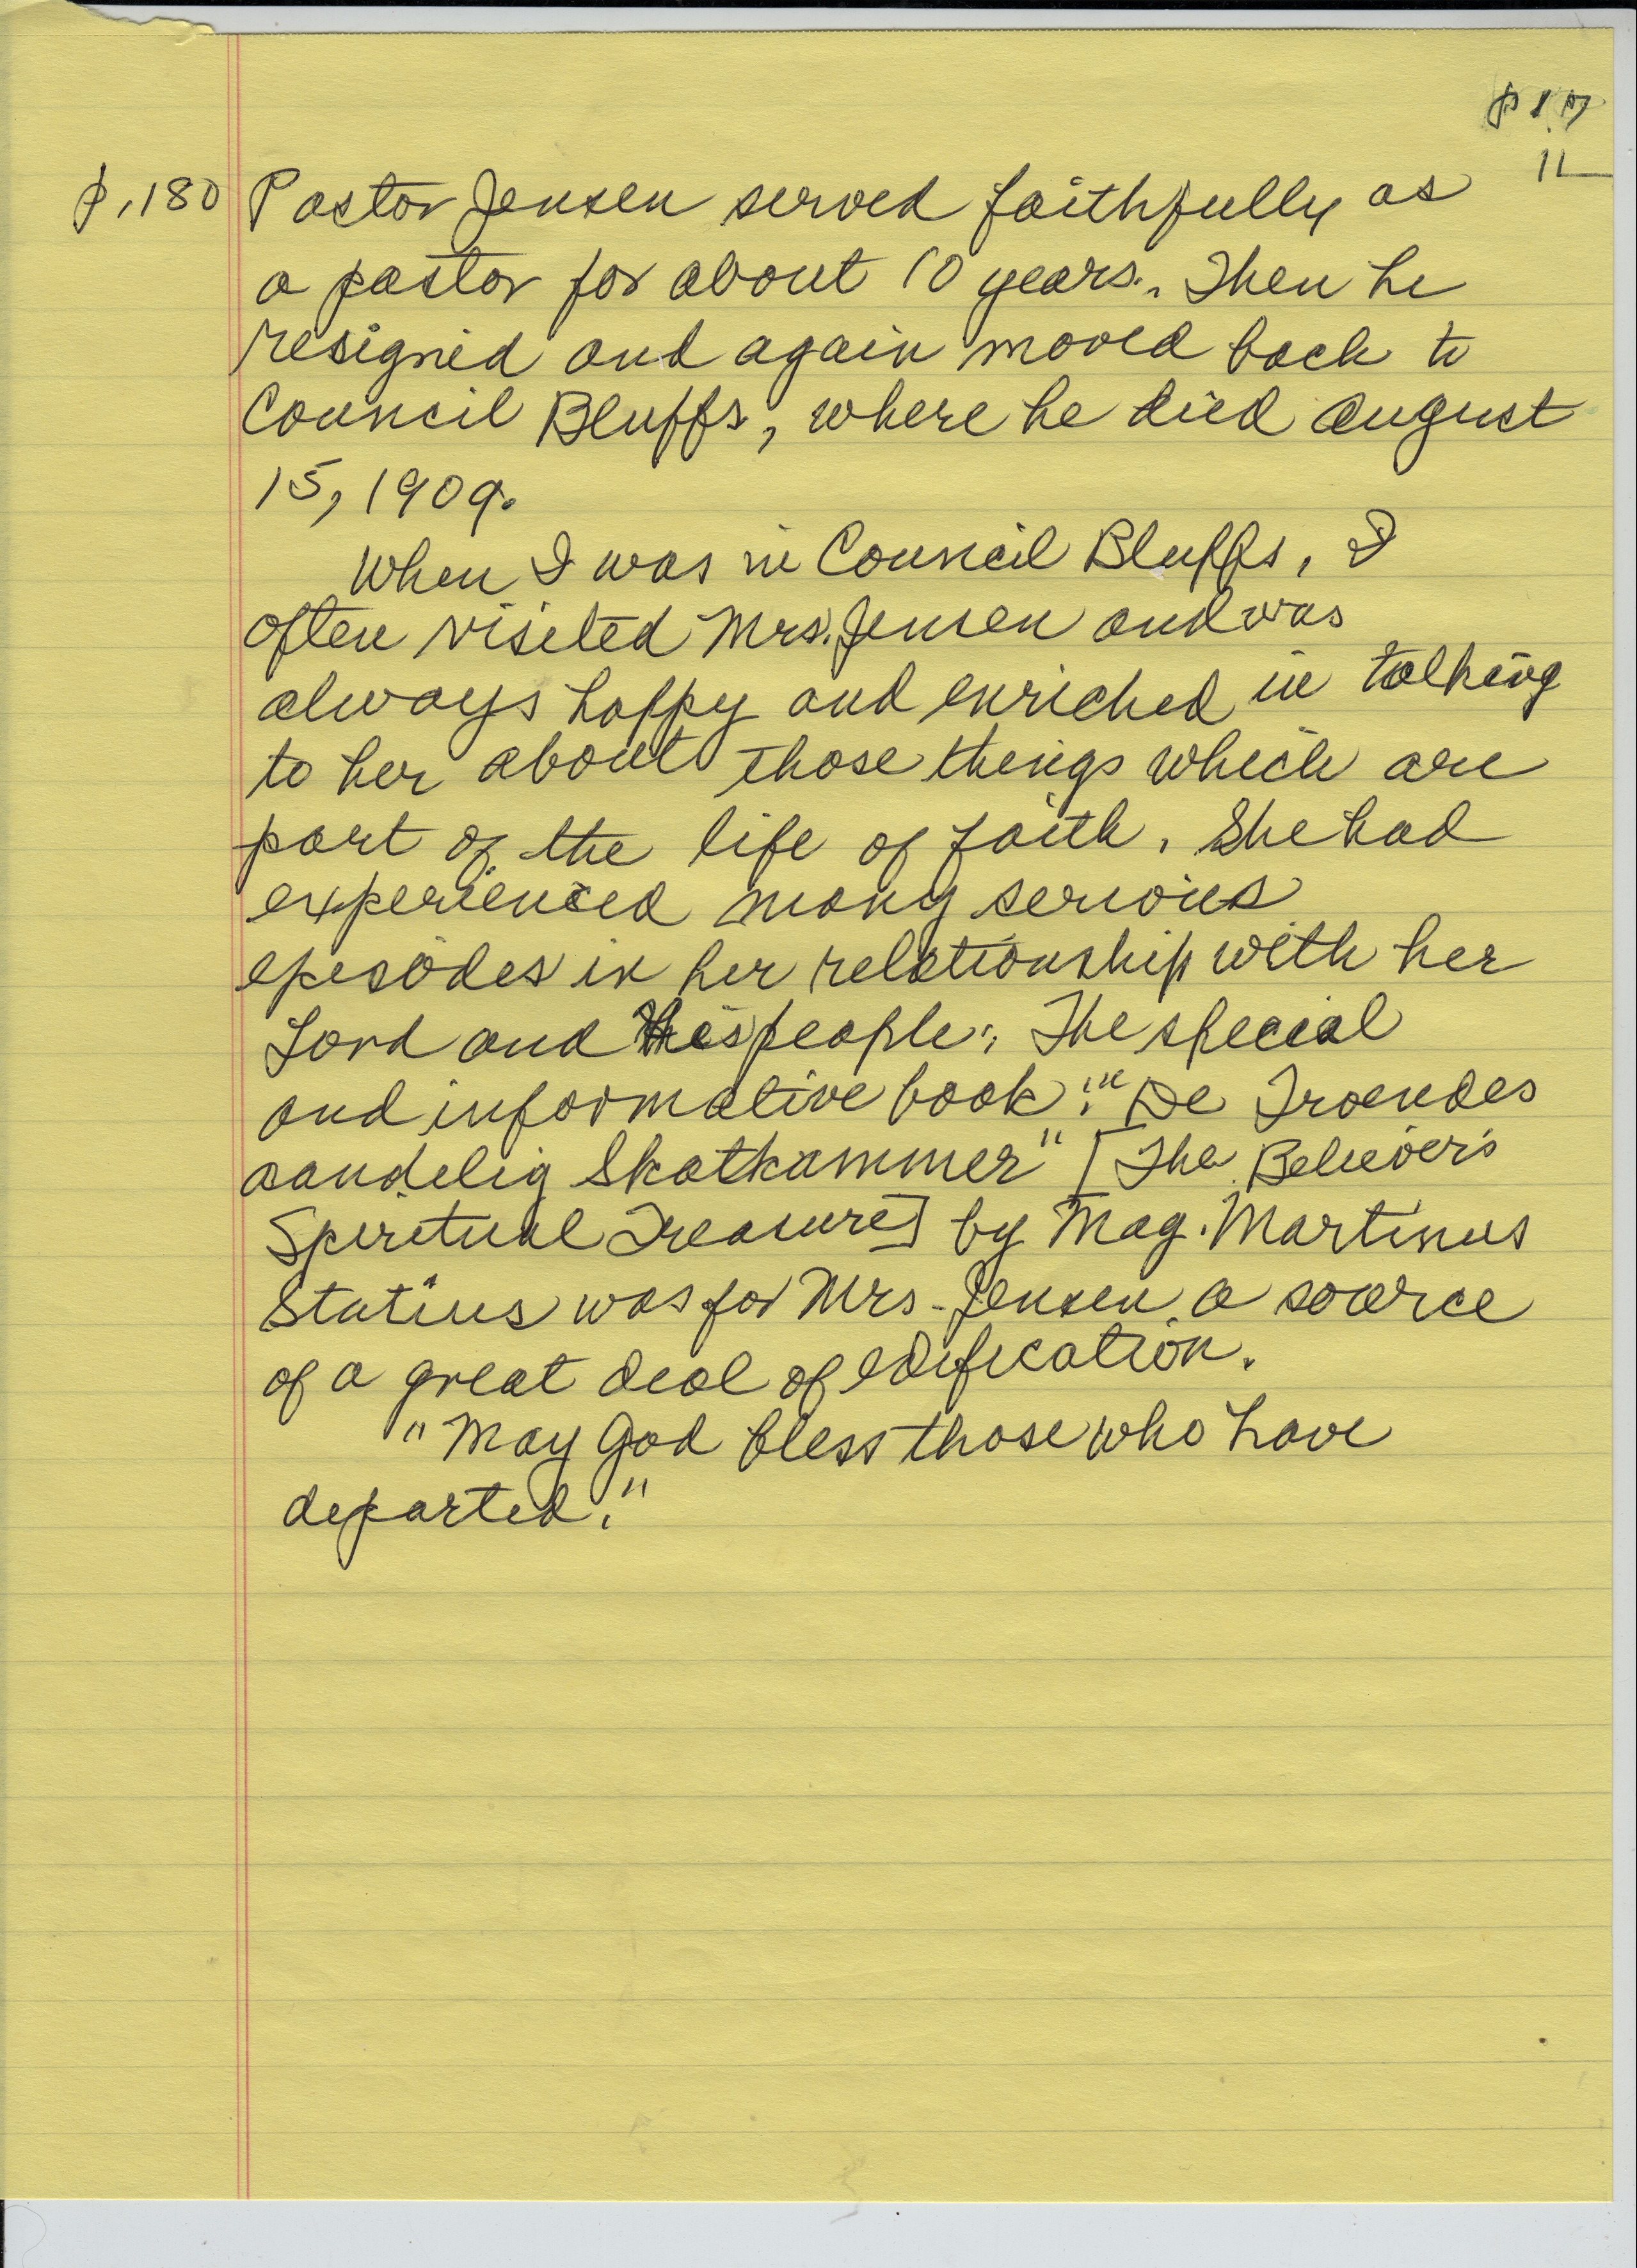 11
p. 180 Pastor Jensen served faithfully as
a pastor for about 10 years. Then he
resigned and again moved back to
Council Bluffs, where he died August
15, 1909.
When I was in Council Bluffs, I
often visited Mrs. Jensen and was
always happy and enriched in talking
to her about those things which are
part of the life of faith. She had
experienced many serious
episodes in her relationship with her
Lord and His people. The special
and informative book: "De Troendes
aandelig Skatkammer" [The Believer's
Spiritual Treasure] by Mag. Martinus
Statius was for Mrs. Jensen a source
of a great deal of edification.
"May God bless those who have
departed."